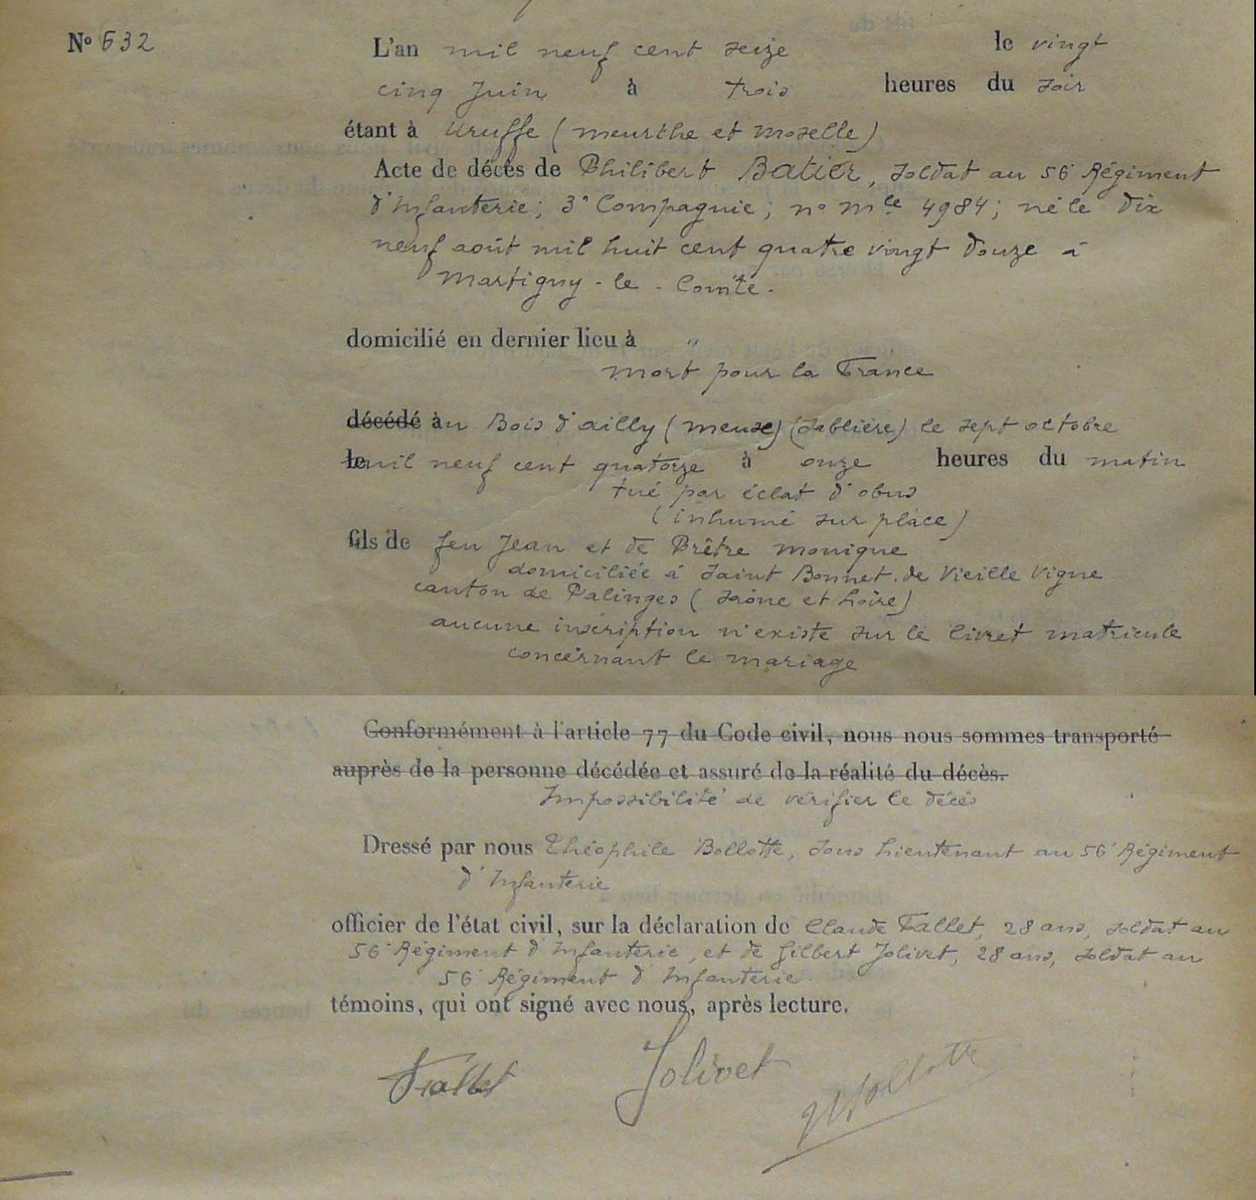 N° 632
L'an mil neuf cent seize le vingt
cinq Juin à trois heures du soir
étant à Uruffe (Meurthe et Moselle)
Acte de décès de Philibert Batier, soldat au 56e Régiment
d'Infanterie; 3e Compagnie; n° mle 4984; né le dix
neuf août mil huit cent quatre vingt douze à
Martigny-le-Comte.
domicilié en dernier lieu à "
mort pour la France
décédé au Bois d'ailly (Meuse) (Sablière) le sept octobre
le mil neuf cent quatorze à onze heures du matin
tué par éclat d'obus
(inhumé sur place)
fils de feu Jean et de Brêtre Monique
domiciliée à Saint Bonnet de Vieille Vigne
canton de Palinges (Saône et Loire)
aucune inscription n'existe sur le livret matricule
concernant le mariage
Conformément à l'article 77 du Code civil, nous nous sommes transporté
auprès de la personne décédée et assuré de la réalité du décès.
Impossibilité de vérifier le décès
Dressé par nous Théophile Bollotte, sous Lieutenant au 56e Régiment
d'Infanterie
officier de l'état civil, sur la déclaration de Claude Fallet, 28 ans, soldat au
56e Régiment d'Infanterie, et de Gilbert Jolivet, 28 ans, soldat au
56e Régiment d'Infanterie
témoins, qui ont signé avec nous, après lecture.
Fallet Jolivet Bollotte